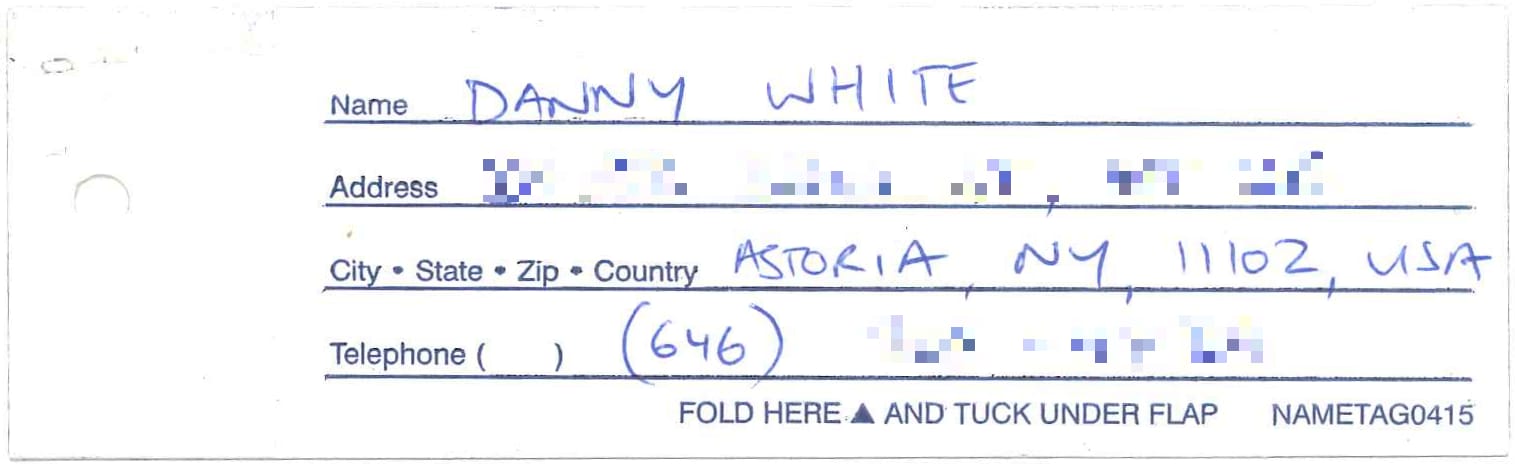 Name DANNY WHITE
Address
City • State • Zip • Country ASTORIA, NY, 11102, USA
Telephone ( ) (646)
FOLD HERE ▲ AND TUCK UNDER FLAP NAMETAG0415